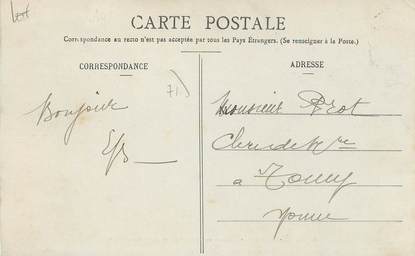 CARTE POSTALE
Correspondance au recto n'est pas acceptée par tous les Pays Étrangers. (Se renseigner à la Poste.)
CORRESPONDANCE
ADRESSE
71)
Bonjour
Monsieur Prot
Clerc de Nre
a Toucy
Yonne